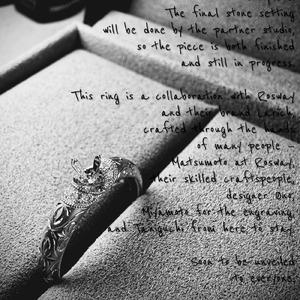 The final stone setting
will be done by the partner studio,
so the piece is both finished
and still in progress.
This ring is a collaboration with Rosway
and their brand Larich,
crafted through the hands
of many people –
Matsumoto at Rosway,
their skilled craftspeople,
designer Ono,
Miyamoto for the engraving,
and Taniguchi from here to stay.
Soon to be unveiled
to everyone.